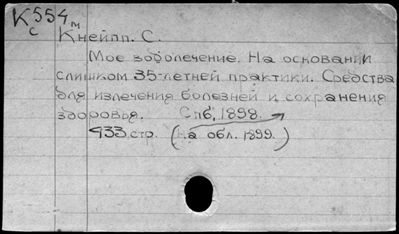 К554м
с
Кнейпп. С.
Мое водолечение. На основании
слишком 35-летней практики. Средства
для излечения болезней и сохранения
здоровья. Спб, 1898.
433 стр. (на обл. 1899.)